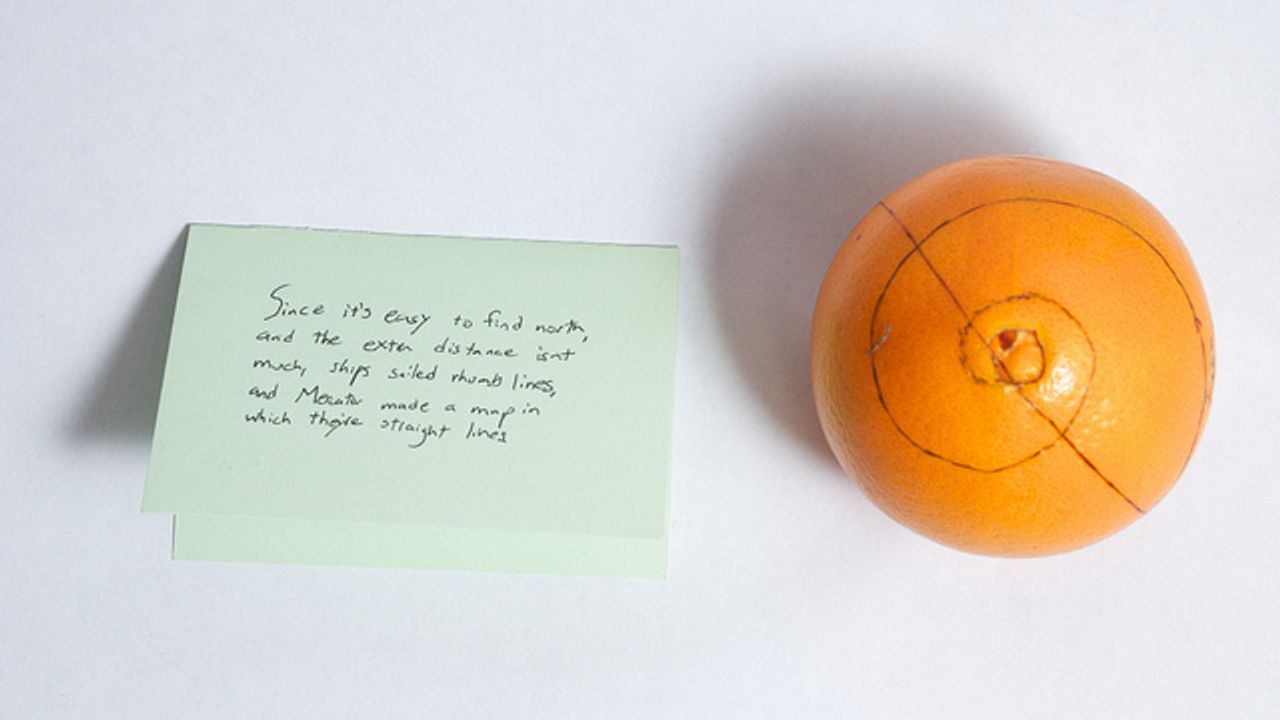 Since it's easy to find north,
and the extra distance isnt
much, ships sailed rhumb lines,
and Mercator made a map in
which they're straight lines